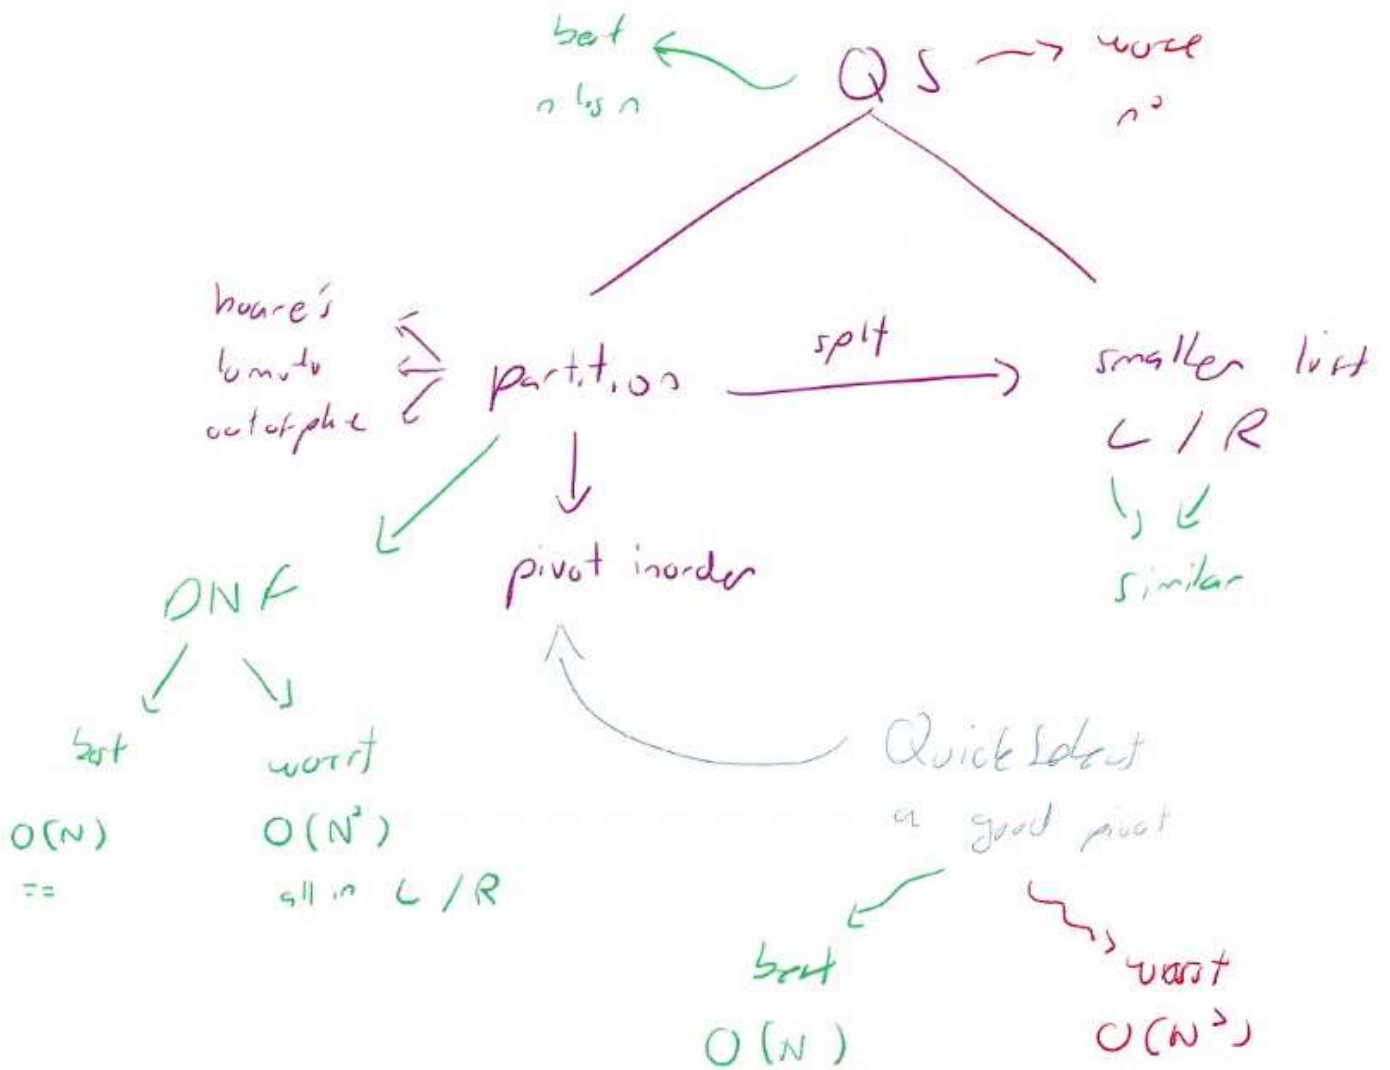 best
n log n
QS
worse
n²
hoare's
lomuto
outofplace
partition
split
smaller list
L / R
similar
pivot inorder
DNF
best
O(N)
==
worst
O(N²)
all in L / R
QuickSelect
a good pivot
best
O(N)
worst
O(N²)